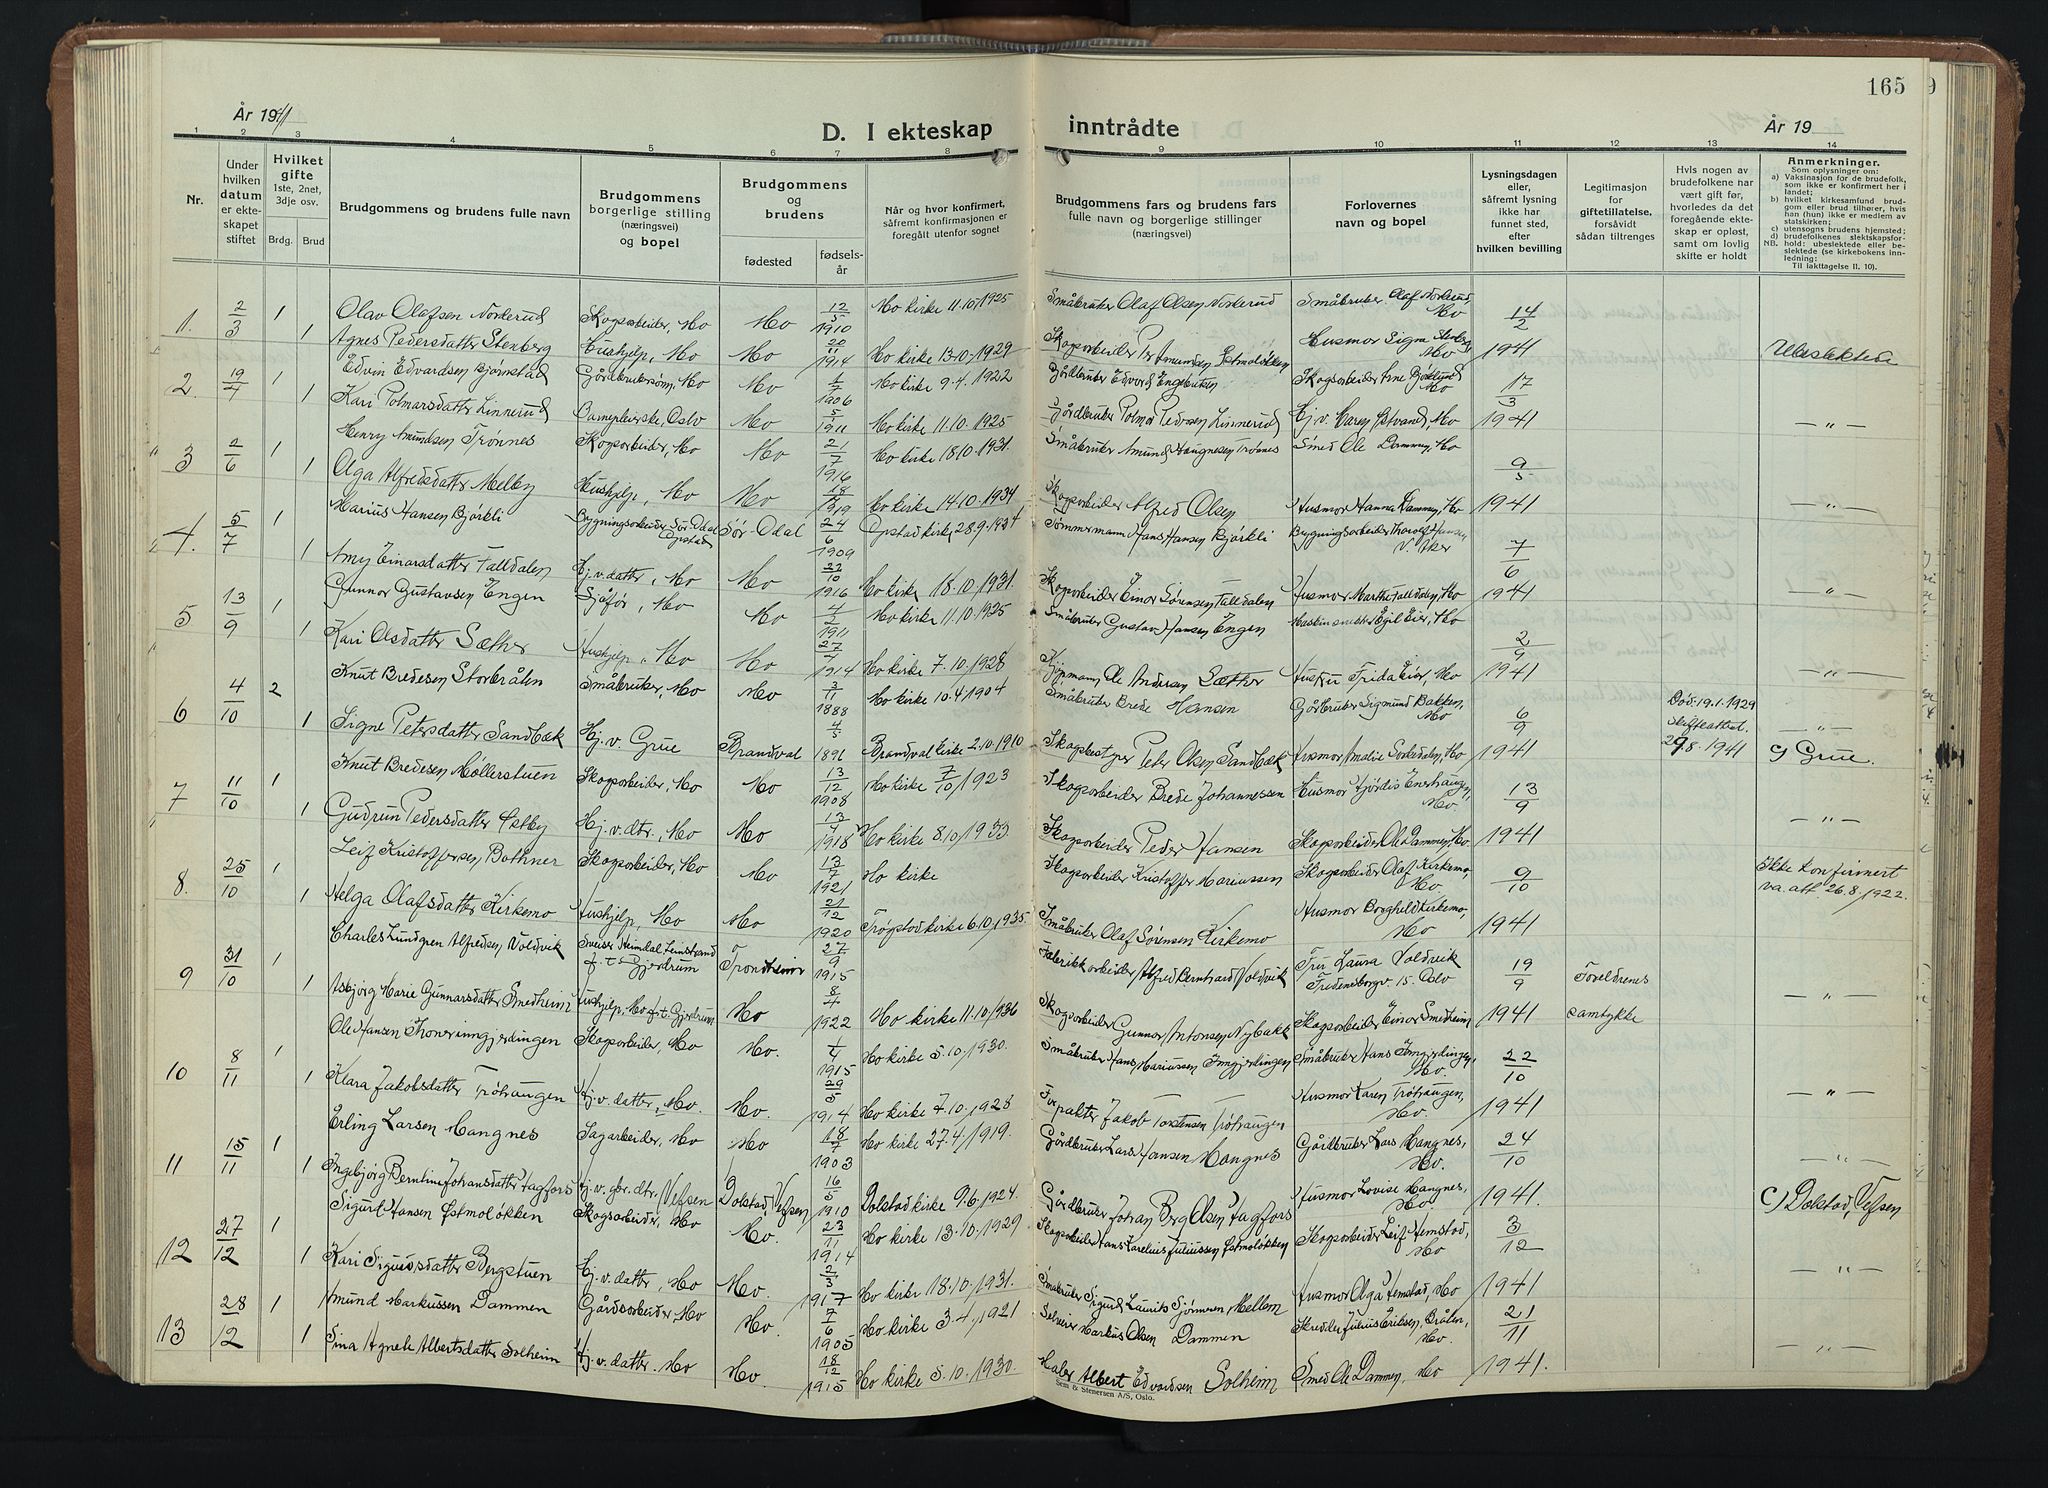 165
9
År 1941
D. I ekteskap inntrådte
År 19
1 2 3 4 5 6 7 8 9 10 11 12 13 14
Nr.
Under hvilken datum er ekteskapet stiftet
Hvilket gifte
1ste, 2net, 3dje osv.
Brdg. Brud
Brudgommens og brudens fulle navn
Brudgommens borgerlige stilling (næringsvei) og bopel
Brudgommens og brudens
fødested
fødselsår
Når og hvor konfirmert, såfremt konfirmasjonen er foregått utenfor sognet
Brudgommens fars og brudens fars fulle navn og borgerlige stillinger (næringsvei)
Forlovernes navn og bopel
Lysningsdagen eller, såfremt lysning ikke har funnet sted, efter hvilken bevilling
Legitimasjon for giftetillatelse, forsåvidt sådan tiltrenges
Hvis nogen av brudefolkene har vært gift før, hvorledes da det foregående ekteskap er opløst, samt om lovlig skifte er holdt
Anmerkninger.
Som oplysninger om:
a) Vaksinasjon for de brudefolk, som ikke er konfirmert her i landet;
b) hvilket kirkesamfund brudgom eller brud tilhører, hvis han (hun) ikke er medlem av statskirken;
c) utensogns brudens hjemsted;
d) brudefolkenes slektskapsforhold: ubeslektede eller beslektede (se kirkebokens innledning:
NB.
Til Iakttagelse II. 10).
1. 2/3 1 Olav Olafsen Norkerud Skogsarbeider, Mo Mo 12/5 1910 Mo kirke 11.10.1925 Småbruker Olaf Olsen Norkerud Småbruker Olaf Norkerud, Mo 14/2
1 Agnes Pedersdatter Stenberg Hushjelp, Mo Mo 20/11 1914 Mo kirke 13.10.1929 Skogsarbeider Per Amundsen Østmoløkken Husmor Signe Stenberg Mo 1941 Ubeslektede
2. 19/4 1 Edvin Edvardsen Bjørnstad Gårdbrukersønn, Mo Mo 1906 Mo kirke 9.4.1922 Gårdbruker Edvard Engebretsen Skogsarbeider Arne Mo 17/3
1 Kari Polmarsdatter Linnerud Barnepleierske, Oslo Mo 1911 Mo kirke 11.10.1925 Gårdbruker Polmar Pedersen Linnerud Hj.v. Karen Østvand, Mo 1941 — " —
3 2/6 1 Henry Amundsen Trønnes Skogsarbeider, Mo Mo 21/7 1916 Mo kirke 18.10.1931. Småbruker Amund Haugnesen Trønnes Smed Ole Dammen, Mo 9/5
1 Olga Alfredsdatter Melby Hushjelp, Mo Mo 1919 Mo kirke 14.10.1934 Skogsarbeider Alfred Olsen Husmor Hanna Dammen, Mo 1941 — " —
4. 5/7 1 Marius Hansen Bjørkli Bygningsarbeider Sør-Odal Opstad Sør-Odal 24/6 1909 Opstad kirke 28.9.1934 Tømmermann Hans Hansen Bjørkli Bygningsarbeider Thorolf Hansen V. Aker 7/6
1 Amy Einarsdatter Falldalen Hj.v. datter, Mo Mo 22/10 1916 Mo kirke 18.10.1931. Skogsarbeider Einar Sørensen Falldalen Husmor Marthe Falldalen, Mo 1941 — " —
5 13/9 1 Gunnar Gustavsen Engen Sjåfør, Mo Mo 4/2 1911 Mo kirke 11.10.1925 Småbruker Gustav Hansen Engen Maskinsnekker Egil Eier, Mo 2/9
1 Kari Olsdatter Sæther Hushjelp, Mo Mo 1914 Mo kirke 7.10.1928 Kjøpmann Ole Andersen Sæther Husfru Frida Eier, Mo 1941 — " —
6 4/10 2 Knut Bredesen Storbråten Småbruker, Mo Mo 3/11 1888 Mo kirke 10.4.1904 Småbruker Brede Hansen Gårdbruker Sigmund Bakken, Mo 6/9 Død 19.1.1929 skifteattest
1 Signe Petersdatter Sandbæk Hj. v. Grue Brandval 4/5 1891 Brandval kirke 2.10.1910 Skogbestyrer Peter Olsen Sandbæk Husmor Amalie Mo 1941 29.8.1941 — " — c) Grue.
7 11/10 1 Knut Bredesen Møllerstuen Skogsarbeider, Mo Mo 13/12 1908 Mo kirke 7/10 1923 Skogsarbeider Brede Johannessen Husmor Hjørdis Enerhaugen, Mo. 13/9
1 Gudrun Pedersdatter Østby Hj.v. dtr., Mo Mo 1918 Mo kirke 8.10.1933 Skogsarbeider Peder Hansen Skogsarbeider Ole Dammen, Mo. 1941 — " —
8. 25/10 1 Leif Kristoffersen Bothner Skogsarbeider, Mo Mo 13/7 1921 Mo kirke Skogsarbeider Kristoffer Mariussen Skogsarbeider Olaf Kirkemo, Mo 9/10 Ikke konfirmert va. att. 26.8.1922.
1 Helga Olafsdatter Kirkemo Hushjelp, Mo Mo 21/12 1920 Trøgstad kirke 6.10.1935. Småbruker Olaf Sørensen Kirkemo Husmor Borghild Kirkemo, Mo 1941
9 31/10 1 Charles Lundgren Alfredsen Voldvik Sveiser Heimdal Leinstrand f. t. Gjerdrum Trondheim 27/9 1915 Fabrikkarbeider Alfred Bernhard Voldvik Fru Laura Voldvik Fredensborgv. 15. Oslo 19/9 Foreldrenes
1 Asbjørg Marie Gunnarsdatter Smedheim Hushjelp, Mo f.t. Gjerdrum Mo 1922 Mo kirke 11.10.1936 Skogsarbeider Gunnar Antonsen Nybakk Skogsarbeider Einar Smedheim 1941 samtykke — " —
10 8/11 1 Ole Hansen Innmgjerdingen Skogsarbeider, Mo Mo. 1/4 1915 Mo kirke 5.10.1930. Småbruker Hans Mariussen Inngjerdingen Småbruker Hans Inngjerdingen, Mo. 22/10
1 Klara Jakobsdatter Trøhaugen Hj.v. datter, Mo. Mo. 29/5 1914 Mo kirke 7.10.1928 Forpakter Jakob Torstensen Trøhaugen Husmor Karen Trøhaugen, Mo. 1941 — " —
11 15/11 1 Erling Larsen Mangnes Sagarbeider, Mo Mo 18/7 1903 Mo kirke 27.4.1919. Gårdbruker Lars Hansen Mangnes Gårdbruker Lars Mangnes, Mo. 24/10
1 Ingebjørg Berntine Johansdatter Hagfors Hj.v. gbr. dtr, Vefsen Dolstad, Vefsen 16/5 1910 Dolstad kirke 9.6.1924. Gårdbruker Johan Berg Olsen Hagfors Husmor Lovise Mangnes, Mo. 1941. — " — c) Dolstad, Vefsen
12 27/12 1 Sigurd Hansen Østmoløkken Skogsarbeider, Mo Mo. 23/11 1914 Mo kirke 13.10.1929 Skogsarbeider Hans Karelius Juliussen Østmoløkken Skogsarbeider Leif Hemstad, Mo 3/12
1 Kari Sigurdsdatter Bergstuen Hj.v. datter, Mo Mo. 2/3 1917 Mo kirke 18.10.1931. Småbruker Sigurd Laurits Mellem Husmor Olga Hemstad, Mo 1941 — " —
13 28/12 1 Amund Markussen Dammen Gårdsarbeider, Mo Mo. 7/6 1905 Mo kirke 3.4.1921 Selveier Markus Olsen Dammen Skredder Julius Eriksen, Bråten, Mo. 21/11
1 Sina Agnete Albertsdatter Solheim Hj.v. datter. Mo Mo. 18/12 1915 Mo kirke 5.10.1930. Maler Albert Edvardsen Solheim Smed Ole Dammen, Mo 1941. — " —
Sem & Stenersen A/S, Oslo.